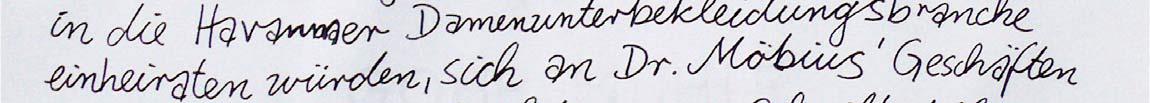 in die Havannaer Damenunterbekleidungsbranche
einheiraten würden, sich an Dr. Möbius' Geschäften